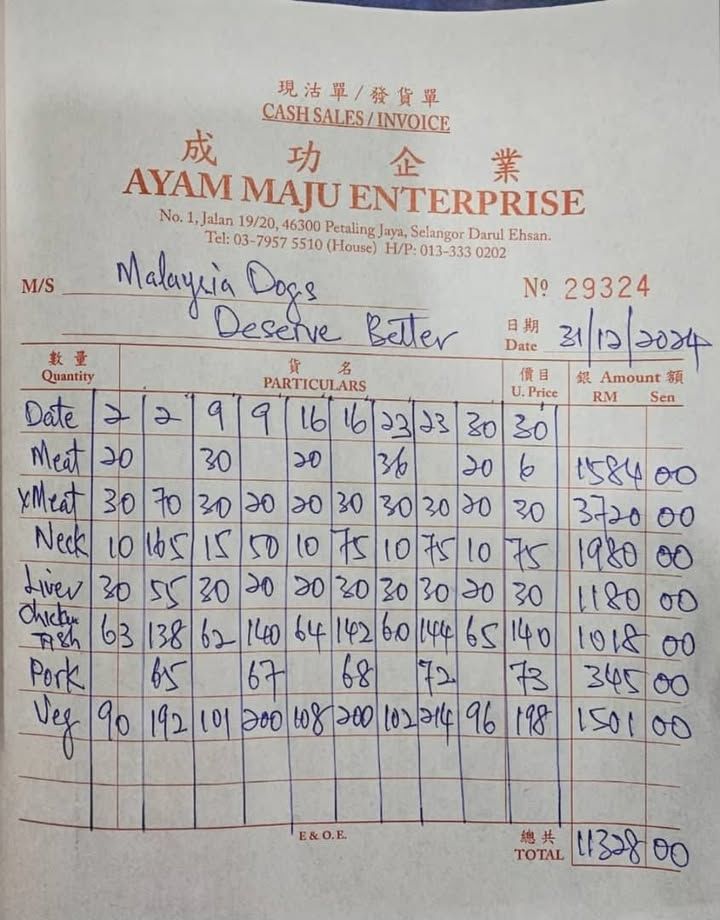 現沽單/發貨單
CASH SALES / INVOICE
成功企業
AYAM MAJU ENTERPRISE
No. 1, Jalan 19/20, 46300 Petaling Jaya, Selangor Darul Ehsan.
Tel: 03-7957 5510 (House) H/P: 013-333 0202
M/S Malaysia Dogs
Deserve Better
Nº 29324
日期
Date 31/12/2024
數量 貨名 價目 銀 Amount 額
Quantity PARTICULARS U. Price RM Sen
Date 2 2 9 9 16 16 23 23 30 30
Meat 20 30 20 36 20 6 1584 00
xMeat 30 70 30 20 20 30 30 30 20 30 3720 00
Neck 10 165 15 50 10 75 10 75 10 75 1980 00
Liver 30 55 30 20 20 30 30 30 20 30 1180 00
Chicken
Fish 63 138 62 140 64 142 60 144 65 140 1018 00
Pork 65 67 68 72 73 345 00
Veg 90 192 101 200 108 200 102 214 96 198 1501 00
E & O. E.
總共
TOTAL 11328 00